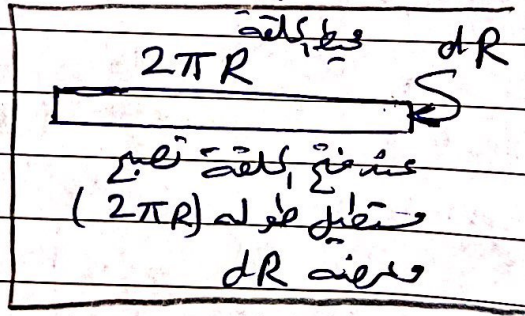 محيط الحلقة
2πR dR
عند فتح الحلقة تصبح
مستطيل طوله (2πR)
وعرضه dR